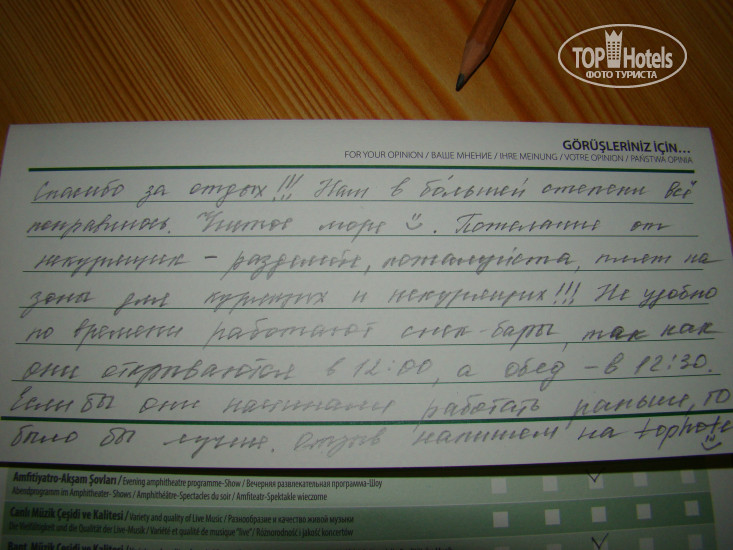 TOP Hotels
ФОТО ТУРИСТА
GÖRÜŞLERİNİZ İÇİN...
FOR YOUR OPINION / ВАШЕ МНЕНИЕ / IHRE MEINUNG / VOTRE OPINION / PAŃSTWA OPINIA
Спасибо за отдых!!! Нам в бо́льшей степени всё
понравилось. Чистое море. Пожелание от
некурящих – разделите, пожалуйста, пляж на
зоны для курящих и некурящих!!! Не удобно
по времени работают снек-бары, так как
они открываются в 12:00, а обед – в 12:30.
Если бы они начинали работать раньше, то
было бы лучше. Отзыв напишем на tophote
Amfitiyatro-Akşam Şovları / Evening amphitheatre programme-Show / Вечерняя развлекательная программа-Шоу
Abendprogramm im Amphitheater- Shows / Amphithéâtre-Spectacles du soir / Amfiteatr-Spektakle wieczorne
Canlı Müzik Çeşidi ve Kalitesi / Variety and quality of Live Music / Разнообразие и качество живой музыки
Die Vielfältigkeit und die Qualität der Live-Musik / Variété et qualité de musique "live" / Różnorodność i jakość koncertów
Müzik Çeşidi ve Kalitesi